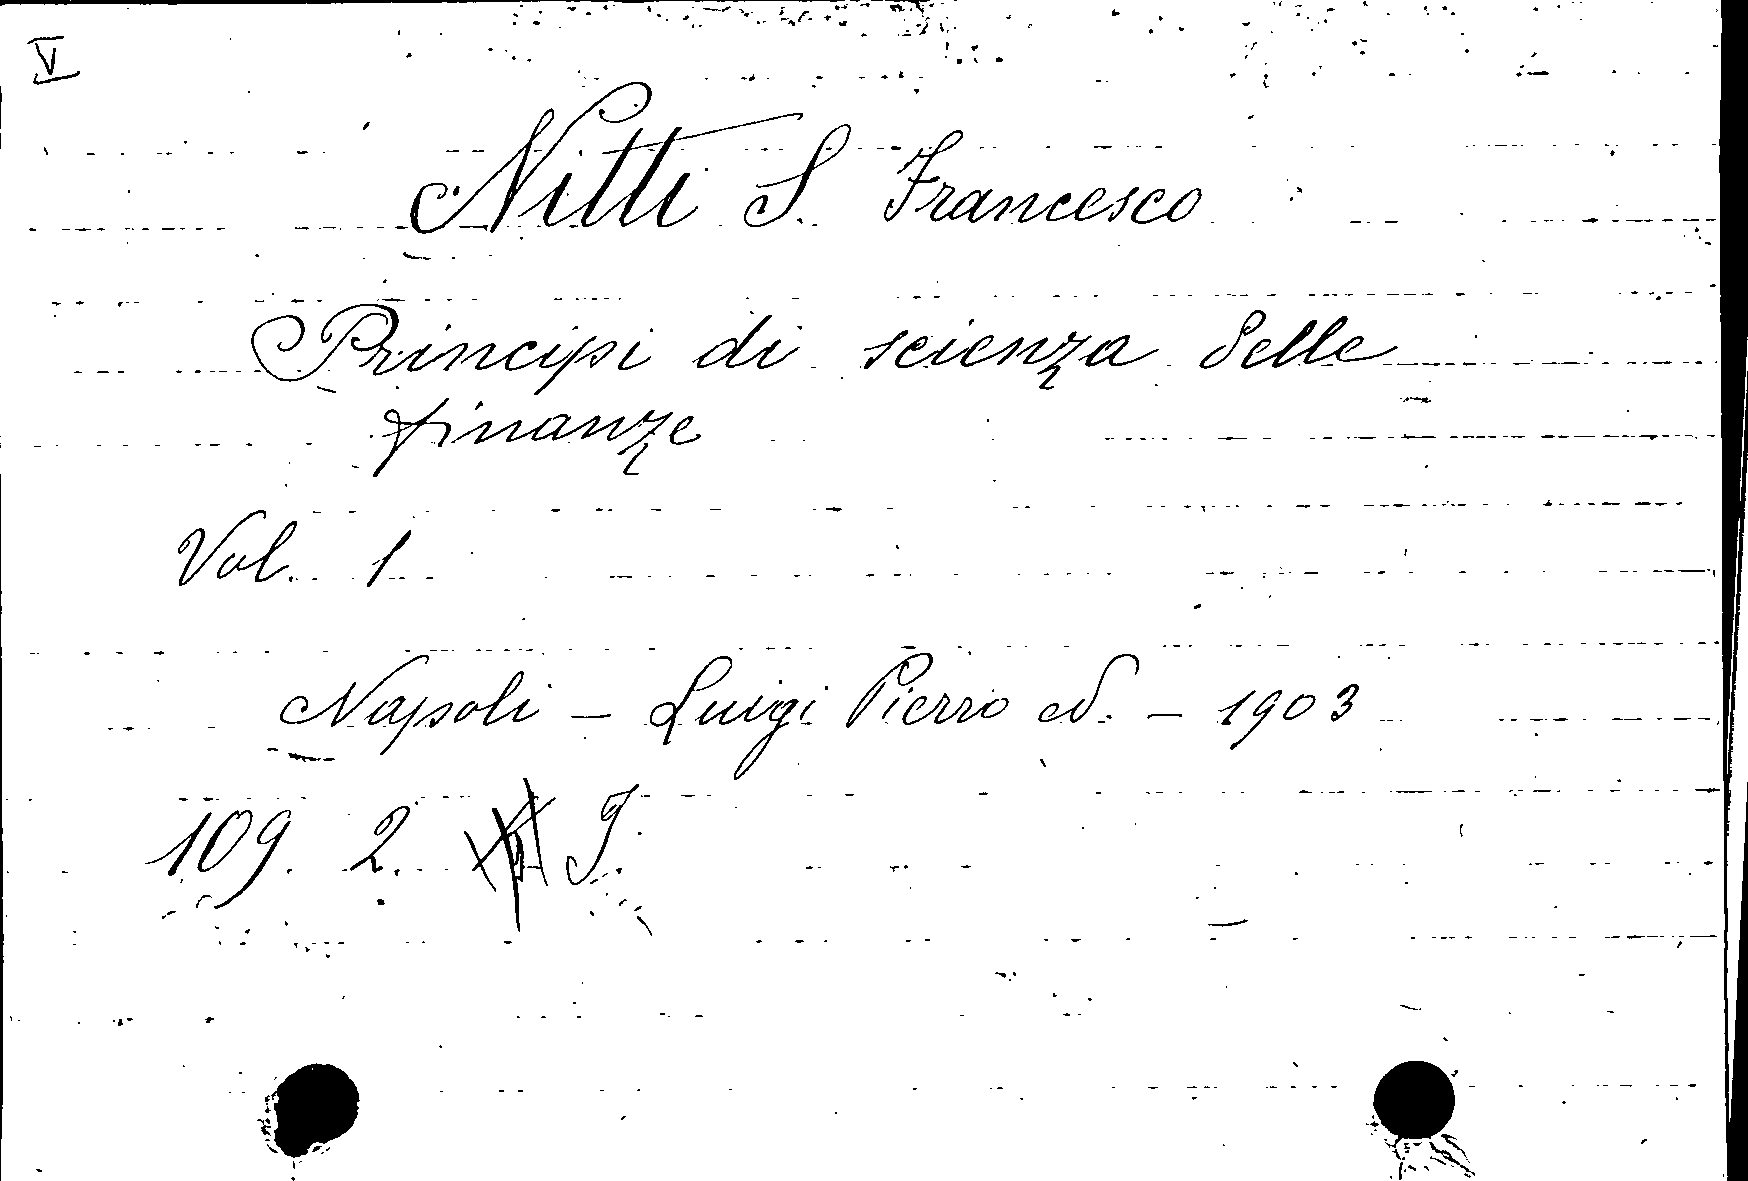 V
Nitti S. Francesco
Principi di scienza delle
finanze
Vol. 1
Napoli – Luigi Pierro ed. – 1903
109. 2. I.